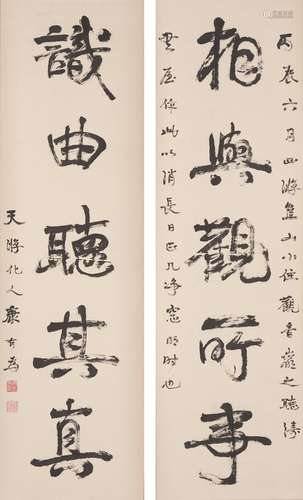 丙辰六月四游山小住觀音巖之聽濤
相與觀所事
書屋作此以消長日正几淨窗明時也
識曲聽其真
天游化人康有為